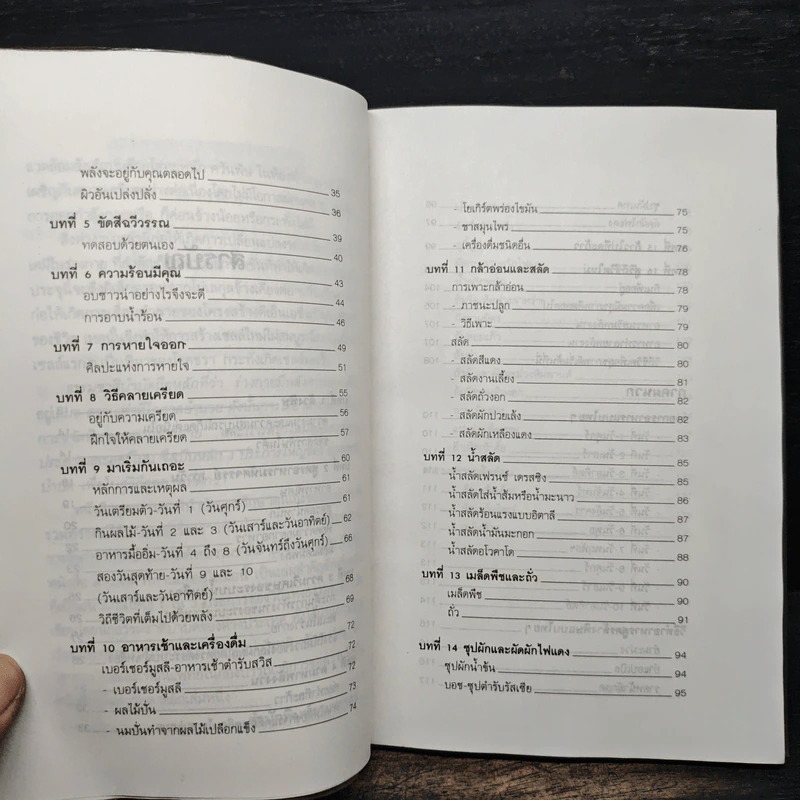 พลังจะอยู่กับคุณตลอดไป 35
ผิวอันเปล่งปลั่ง 36
บทที่ 5 ขัดสีฉวีวรรณ 39
ทดสอบด้วยตนเอง 40
บทที่ 6 ความร้อนมีคุณ 43
อบซาวน่าอย่างไรจึงจะดี 44
การอาบน้ำร้อน 46
บทที่ 7 การหายใจออก 49
ศิลปะแห่งการหายใจ 51
บทที่ 8 วิธีคลายเครียด 55
อยู่กับความเครียด 56
ฝึกใจให้คลายเครียด 57
บทที่ 9 มาเริ่มกันเถอะ 60
หลักการและเหตุผล 61
วันเตรียมตัว-วันที่ 1 (วันศุกร์) 61
กินผลไม้-วันที่ 2 และ 3 (วันเสาร์และวันอาทิตย์) 62
อาหารมื้ออิ่ม-วันที่ 4 ถึง 8 (วันจันทร์ถึงวันศุกร์) 66
สองวันสุดท้าย-วันที่ 9 และ 10
(วันเสาร์และวันอาทิตย์) 68
วิถีชีวิตที่เต็มไปด้วยพลัง 69
บทที่ 10 อาหารเช้าและเครื่องดื่ม 72
เบอร์เชอร์มูสลี-อาหารเช้าตำรับสวิส 72
- เบอร์เชอร์มูสลี 72
- ผลไม้ปั่น 73
- นมปั่นทำจากผลไม้เปลือกแข็ง 74
- โยเกิร์ตพร่องไขมัน 75
- ชาสมุนไพร 75
- เครื่องดื่มชนิดอื่น 76
บทที่ 11 กล้าอ่อนและสลัด 78
การเพาะกล้าอ่อน 78
- ภาชนะปลูก 79
- วิธีเพาะ 79
สลัด 80
- สลัดสีแดง 80
- สลัดงานเลี้ยง 81
- สลัดถั่วงอก 82
- สลัดผักปวยเล้ง 82
- สลัดผักเหลืองแดง 83
บทที่ 12 น้ำสลัด 85
น้ำสลัดเฟรนซ์ เดรสซิง 85
น้ำสลัดใส่น้ำส้มหรือน้ำมะนาว 86
น้ำสลัดร้อนแรงแบบอิตาลี 87
น้ำสลัดน้ำมันมะกอก 87
น้ำสลัดอโวคาโด 88
บทที่ 13 เมล็ดพืชและถั่ว 90
เมล็ดพืช 90
ถั่ว 91
บทที่ 14 ซุปผักและผัดผักไฟแดง 94
ซุปผักน้ำข้น 94
บอช-ซุปตำรับรัสเซีย 95